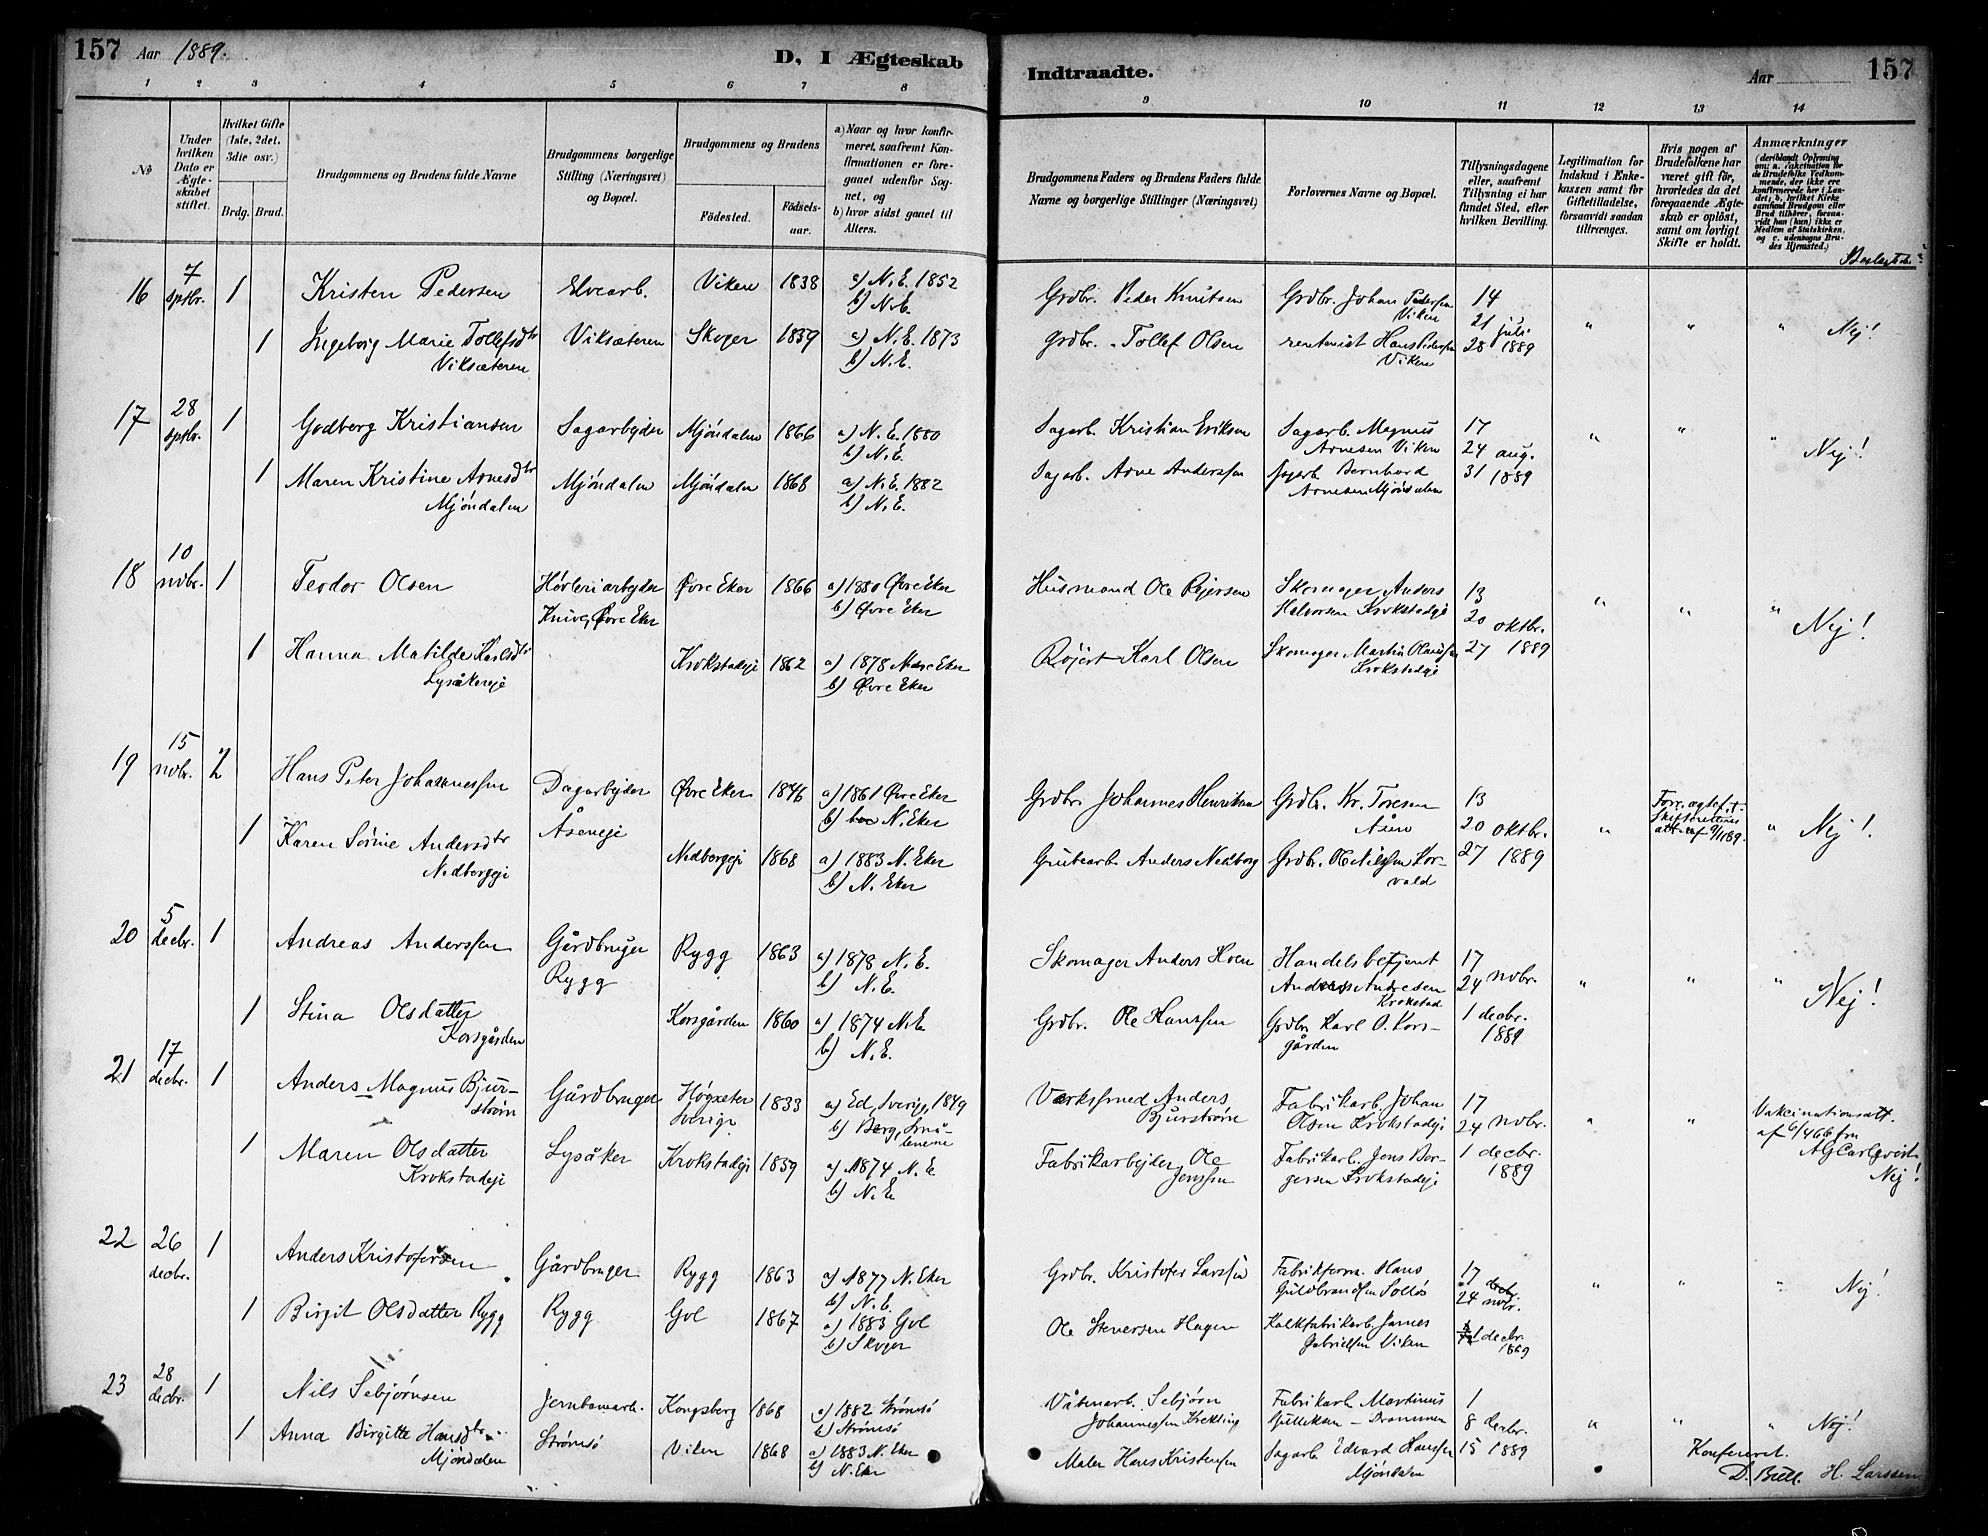 157 Aar 1889.
D, I Ægteskab
Indtraadte.
Aar 157
1 2 3 4 5 6 7 8
9 10 11 12 13 14
No
Under hvilken Dato er Ægteskabet stiftet.
Hvilket Gifte (1ste, 2det, 3die osv.)
Brdg. Brud.
Brudgommens og Brudens fulde Navne
Brudgommens borgerlige Stilling (Næringsvei) og Bopæl.
Brudgommens og Brudens
Fødested. Fødselsaar.
a) Naar og hvor konfirmeret, saafremt Konfirmationen er foregaaet udenfor Sognet, og
b) hvor sidst gaaet til Alters.
Brudgommens Faders og Brudens Faders fulde Navne og borgerlige Stillinger (Næringsvei)
Forlovernes Navne og Bopæl.
Tillysningsdagene eller, saafremt Tillysning ei har fundet Sted, efter hvilken Bevilling.
Legitimation for Indskud i Enkekassen samt for Giftetilladelse, forsaavidt saadan tiltrænges.
Hvis nogen af Brudefolkene har været gift før, hvorledes da det foregaaende Ægteskab er opløst, samt om lovligt Skifte er holdt.
Anmærkninger
(deriblandt Oplysning om: a. Vakcination for de Brudefolks Vedkommende, der ikke ere konfirmerede her i Landet; b. hvilket Kirkesamfund Brudgom eller Brud tilhører, forsaavidt han (hun) ikke er Medlem af Statskirken, og c. udensogns Brudes Hjemsted.)
16 7 sptbr. 1 Kristen Pedersen Elvearb. Viken 1838 a) N.E. 1852 b) N.E. Grdbr. Peder Knutsen Grdbr. Johan Pedersen Viken 14
1 Ingeborg Marie Tollefsdtr Viksæteren Viksæteren Skoger 1859 a) N.E. 1873 b) N.E. Grdbr. Tollef Olsen rentenist Hans Pedersen Viken 21 juli 28 1889 " " " Nej!
17 28 sptbr. 1 Godberg Kristiansen Sagarbejder Mjöndalen 1866 a) N.E. 1880 b) N.E. Sagarb. Kristian Eriksen Sagarb. Magnus Arnesen Viken 17 24 aug.
1 Maren Kristine Arnesdtr Mjöndalen Mjöndalen Mjöndalen 1868 a) N.E. 1882 b) N.E. Sagarb. Arne Anderssen Sagarb. Bernhard Arnesen Mjöndalen 31 1889 " " " Nej!
18 10 novbr. 1 Teodor Olsen Høvleriarbejder Knive, Øvre Eker Øvre Eker 1866 a) 1880 Øvre Eker b) Øvre Eker Husmand Ole Rejersen Skomager Anders Halvorsen Krokstadeje 13 20 oktbr.
1 Hanna Matilde Karlsdtr Lysåkereje Krokstadeje 1862 a) 1878 Nedre Eker b) Øvre Eker Røjert Karl Olsen Skomager Martin Olaussen Krokstadeje 27 1889 " " " Nej!
19 15 novbr. 2 Hans Peter Johannessen Dagarbejder Åseneje Øvre Eker 1846 a) 1861 Øvre Eker b) N. Eker Grdbr. Johannes Henriksen Grdbr. Kr. Toresen Åsen 13 20 oktbr.
1 Karen Sörine Andersdtr Nedbergeje Nedbergeje 1868 a) 1883 N. Eker b) N. Eker Grubearb. Anders Nedberg Grdbr. Ole Nilssen Korvald 27 1889 " " Nej!
20 5 decbr. 1 Andreas Anderssen Gårdbruger Rygg Rygg 1863 a) 1878 N.E. b) N.E. Skomager Anders Hoen Handelsbetjent Anders Andresen Krokstad 17 24 novbr.
1 Stina Olsdatter Korsgården Korsgården 1860 a) 1874 N.E. b) N.E. Grdbr. Ole Hanssen Grdbr. Karl O. Korsgården 1 decbr. 1889 " " " Nej!
21 17 decbr. 1 Anders Magnus Bjurström Gårdbruger Högsæter Sverige 1833 a) Ed, Sverige, 1849 b) Berg, Smålenene Værksmed Anders Bjurström Fabrikarb. Johan Olsen Krokstadeje 17 24 novbr. " " Vakcinationsatt.
1 Maren Olsdatter Krokstadeje Lysåker Krokstadeje 1859 a) 1874 N.E. b) N.E. Fabrikarbejder Ole Jenssen Fabrikarb. Jens Borgersen Krokstadeje 1 decbr. 1889 Nej!
22 26 decbr. 1 Anders Kristofersen Gårdbruger Rygg 1863 a) 1877 N. Eker b) N.E. Grdbr. Kristofer Larssen Fabrikform. Hans Guldbrandsen Solløs 17 24 novbr.
1 Birgit Olsdatter Rygg Rygg Gol 1867 a) 1883 Gol b) Skoger Ole Steversen Hagen Kalkfabrikarb. James Gabrielsen Viken 1 decbr. 1889 " " " Nej!
23 28 decbr. 1 Nils Sebjörnsen Jernbanearb. Kongsberg 1868 a) 1882 Strömsö b) Strömsö Sebjörn Johannessen Fabrikarb. Martinus Gulliksen – Drammen 1 8 decbr.
1 Anna Birgitte Hansdtr Mjöndalen Strömsö Viken 1868 a) 1883 N. Eker b) N. Eker Maler Hans Kristensen Sagarb. Edvard Hanssen Mjöndalen 15 1889 " " " Nej!
Konfereret.
D. Bull. H. Larssen